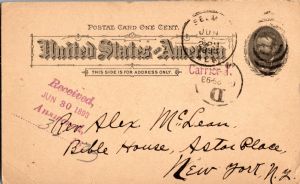 POSTAL CARD ONE CENT.
United States of America
THIS SIDE IS FOR ADDRESS ONLY.
JUN
Carrier
D
Received,
JUN 30 1893
Rev Alex McLean
Bible House, Astor Place,
New York, N.Y.